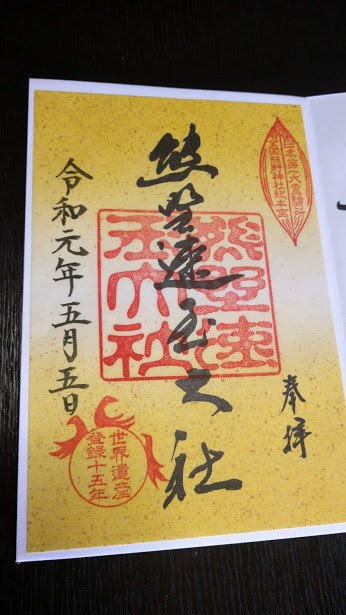 日本第一大霊験所
全国熊野神社総本宮
奉拝
熊野速玉大社
熊野速
玉大社
令和元年五月五日
世界遺産
登録十五年